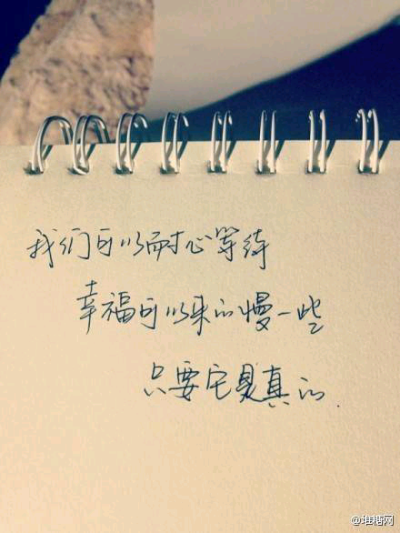 我们可以耐心等待
幸福可以来的慢一些
只要它是真的.
@堆糖网